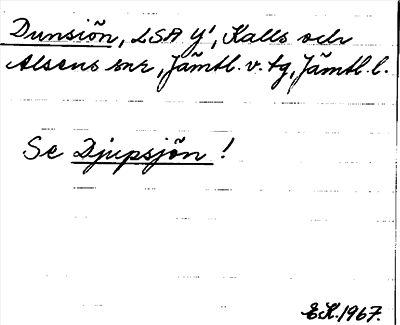 Dunsiön, LSA Y', Kalls och
Alsens snr, Jämtl. v. tg, Jämtl. l.
Se Djupsjön !
E.K. 1967.